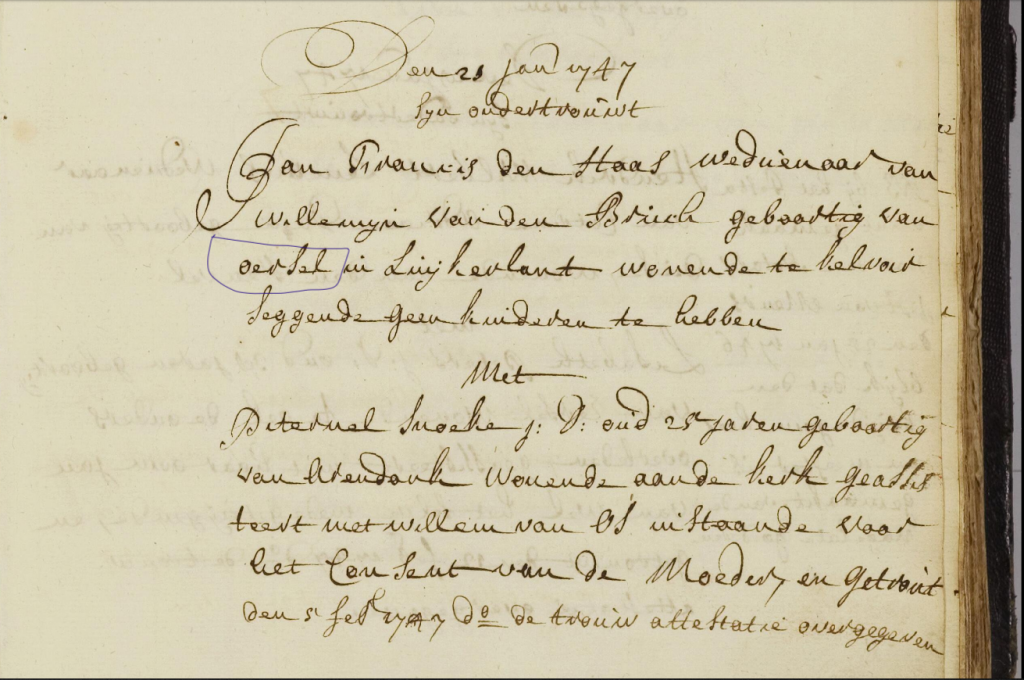 Den 21 Jan 1747
syn ondertrouwt
Jan Francis den Haas weduenaar van
willemijn van den Brink geboortig van
oersel in Luijkerlant wonende te
seggende geen kinderen te hebben
Met
Piternel Snoeke j: D: oud 25 jaren geboortig
van wonende aande kerk geassis
teert met willem van Os instaande voor
het Consent van de Moeder, en getrout
den 5 feb 1747 do de trouw attestatie overgegeven